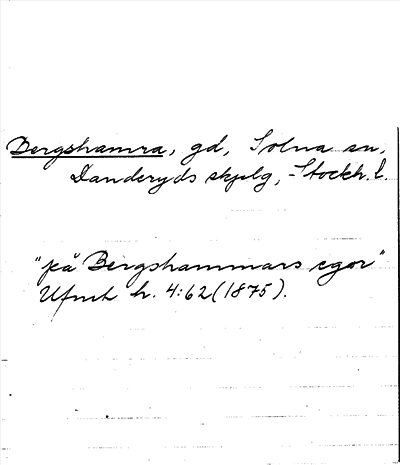 Bergshamra, gd, Solna sn,
Danderyds skplg, Stockh. l.
"på Bergshammars egor"
Ufmt h. 4:62 (1875).